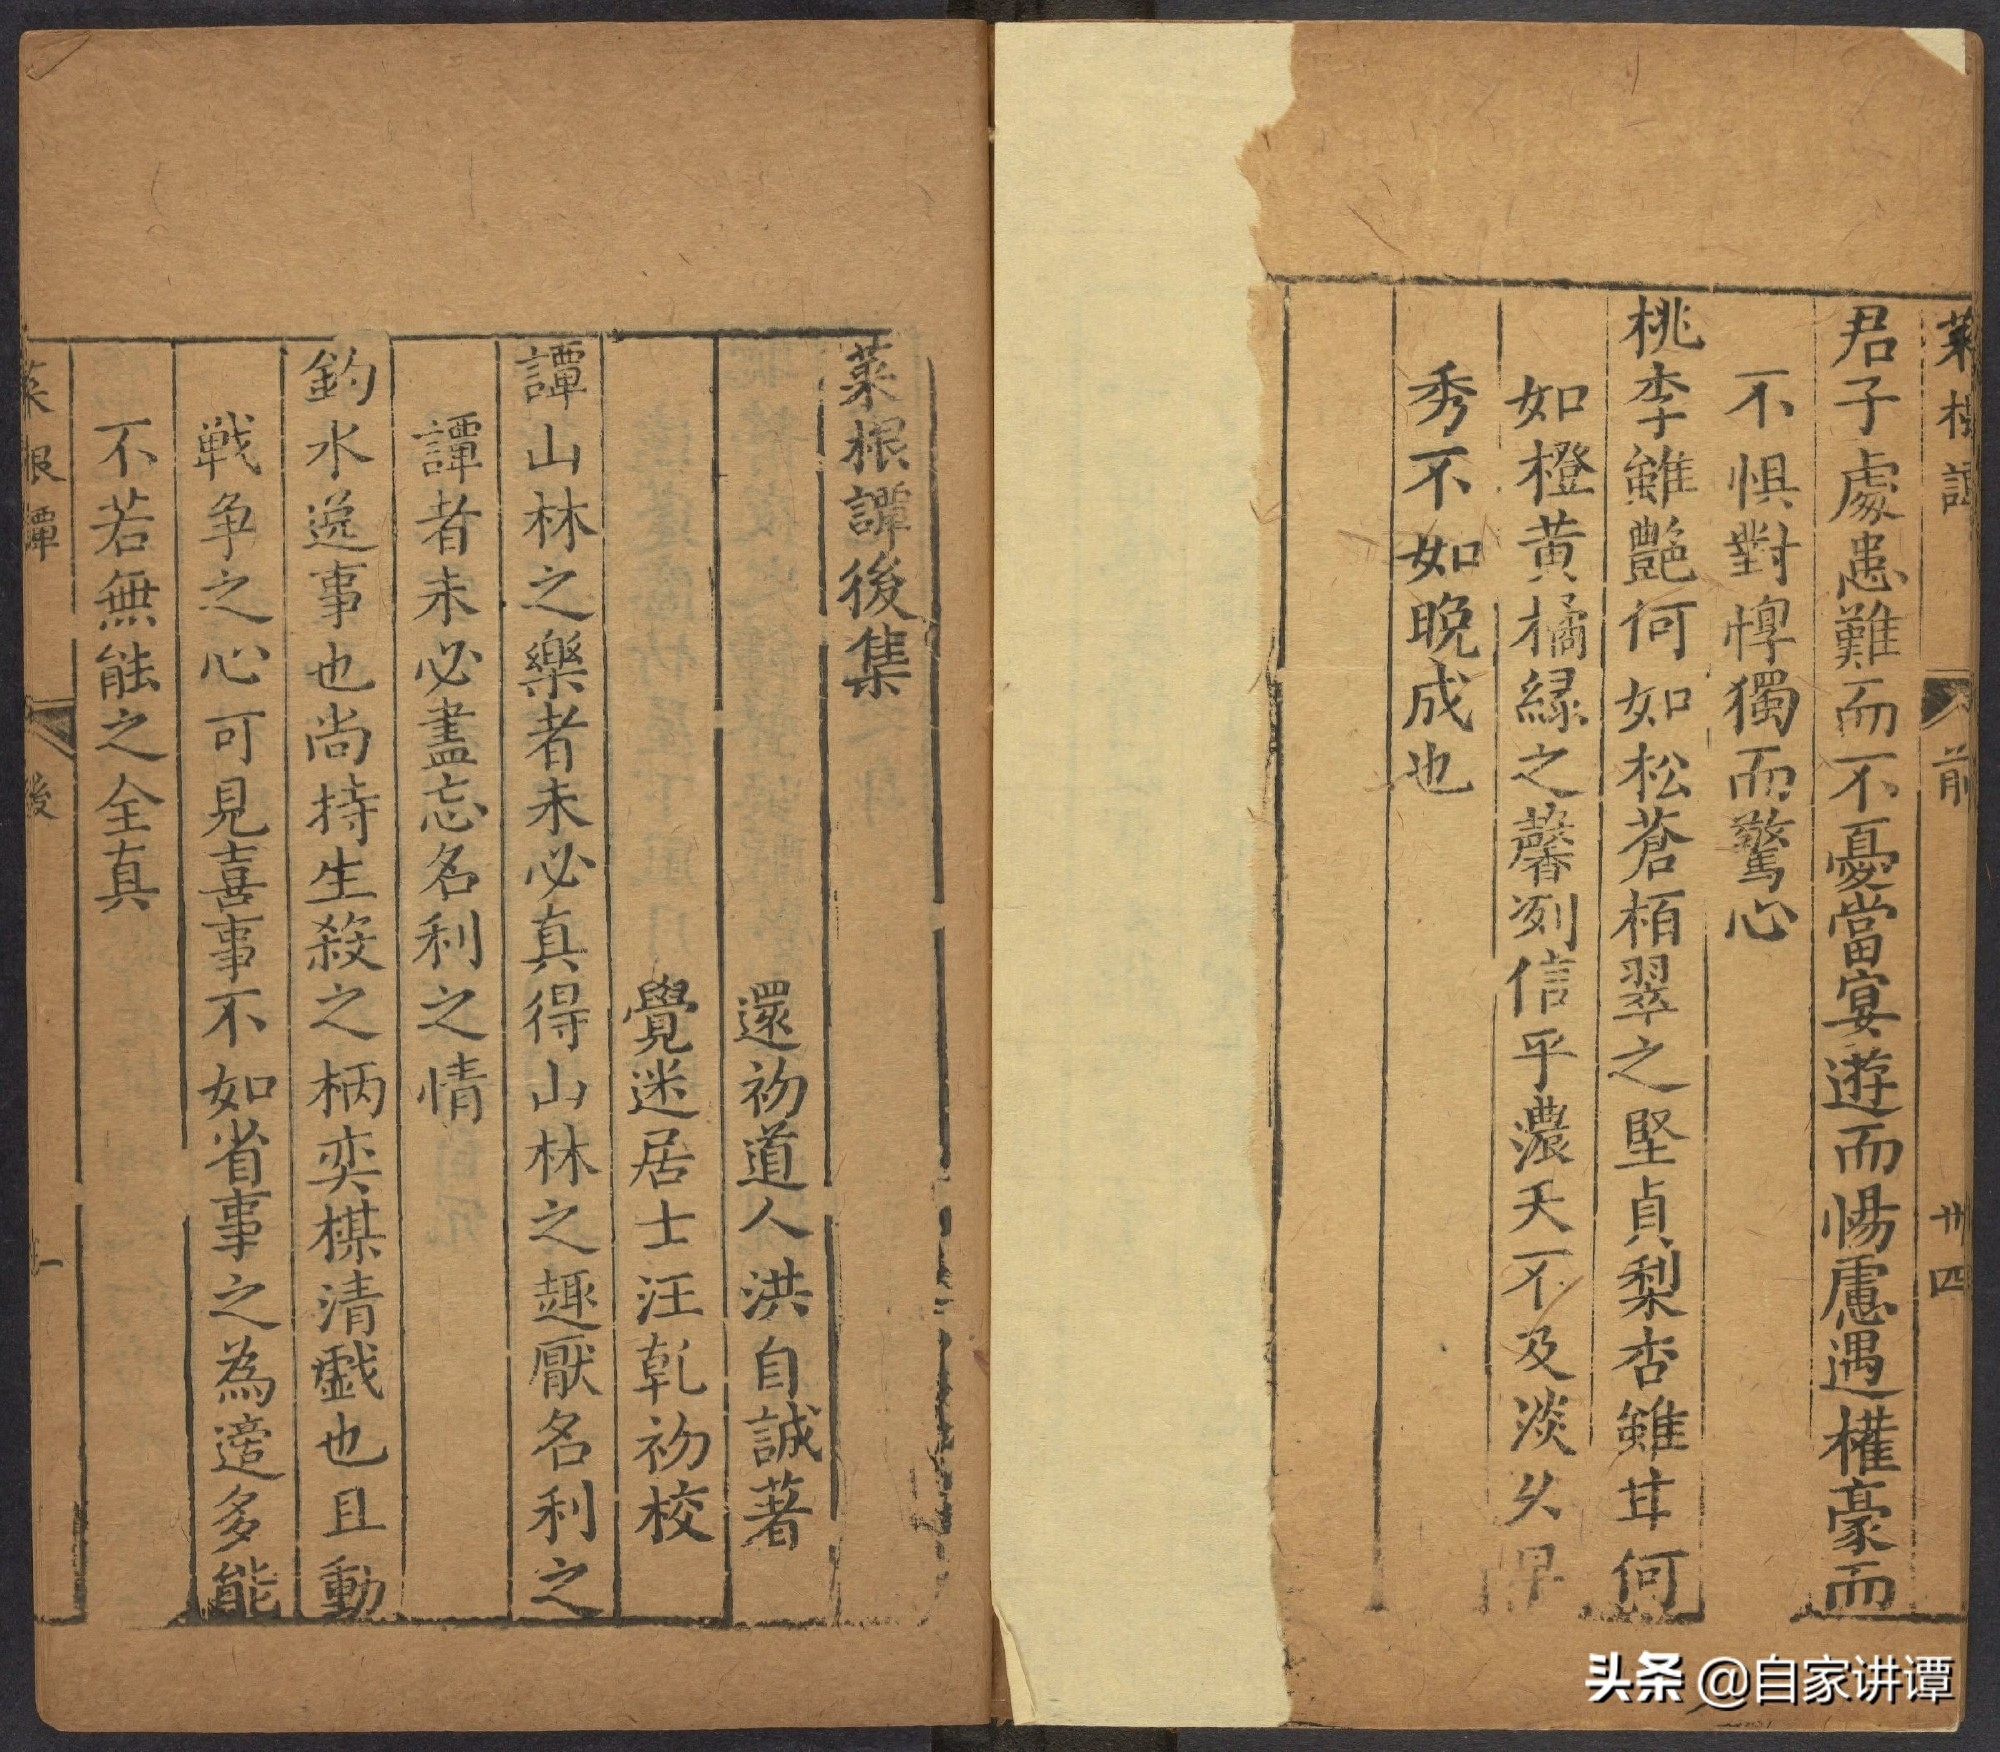 前
廿四
君子處患難而不憂當宴遊而惕慮遇權豪而
不惧對惸獨而驚心
桃李雖艷何如松蒼栢翠之堅貞梨杏雖甘何
如橙黃橘緑之馨冽信乎濃夭不及淡久早
秀不如晚成也
菜根譚後集
還初道人洪自誠著
覺迷居士汪乾初校
譚山林之樂者未必真得山林之趣厭名利之
譚者未必盡忘名利之情
釣水逸事也尚持生殺之柄奕棋清戯也且動
戦争之心可見喜事不如省事之為適多能
不若無能之全真
菜根譚
後
一
头条 @自家讲谭